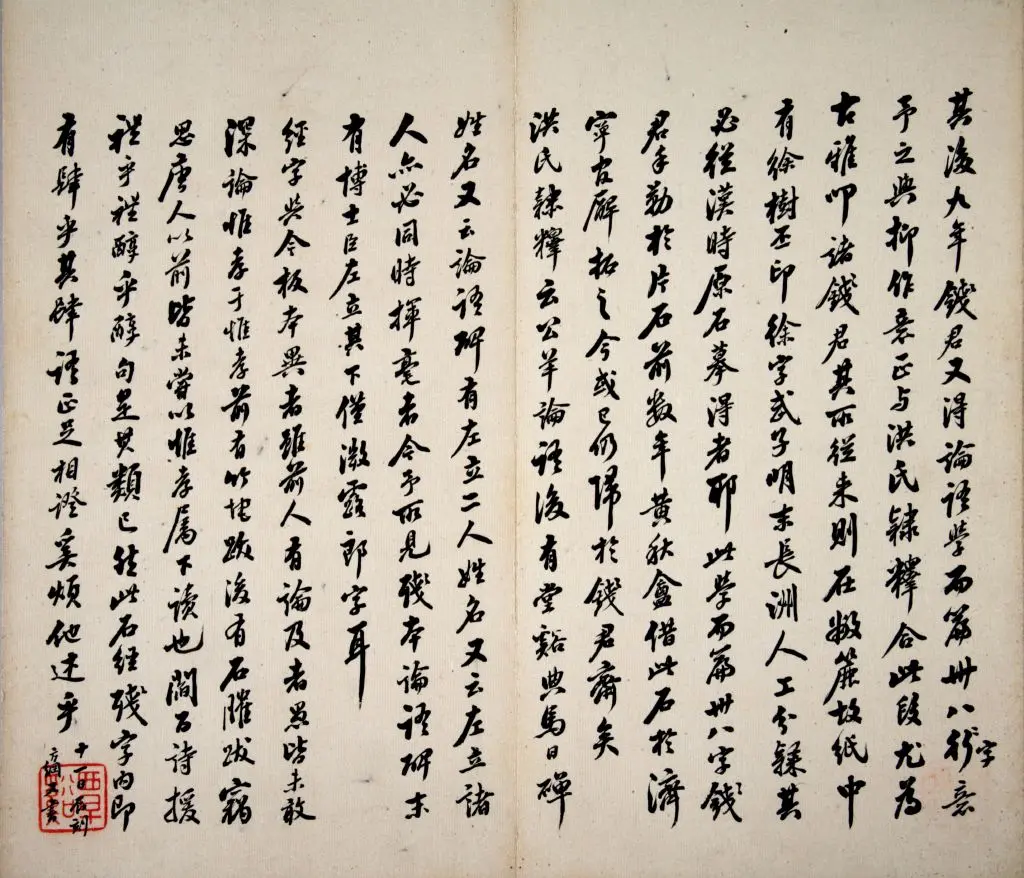 其後九年錢君又得論語學而篇卅八行字意
予之與抑作意正与洪氏隸釋合此段尤為
古雅叩諸錢君其所從来則在敝簏故紙中
有徐樹丕印徐字武子明末長洲人工分隸其
必從漢時原石摹得者耶此學而篇卅八字錢
君手勒於片石前数年黃秋盦借此石於濟
寧官廨拓之今或已仍歸於錢君齋矣
洪氏隸釋云公羊論語後有堂谿典馬日磾
姓名又云論語碑有左立二人姓名又云左立諸
人亦必同時揮毫者今予所見殘本論語碑末
有博士臣左立其下僅微露郎字耳
經字與今板本異者雖前人有論及者愚皆未敢
深論惟孝于惟孝前有竹垞跋後有石臞跋竊
思唐人以前皆未嘗以惟孝屬下讀也閻百詩援
禮乎禮醇乎醇句是其類已然此石經殘字内即
有肆乎其肆語正足相證奚煩他述乎
十一日
方綱又書